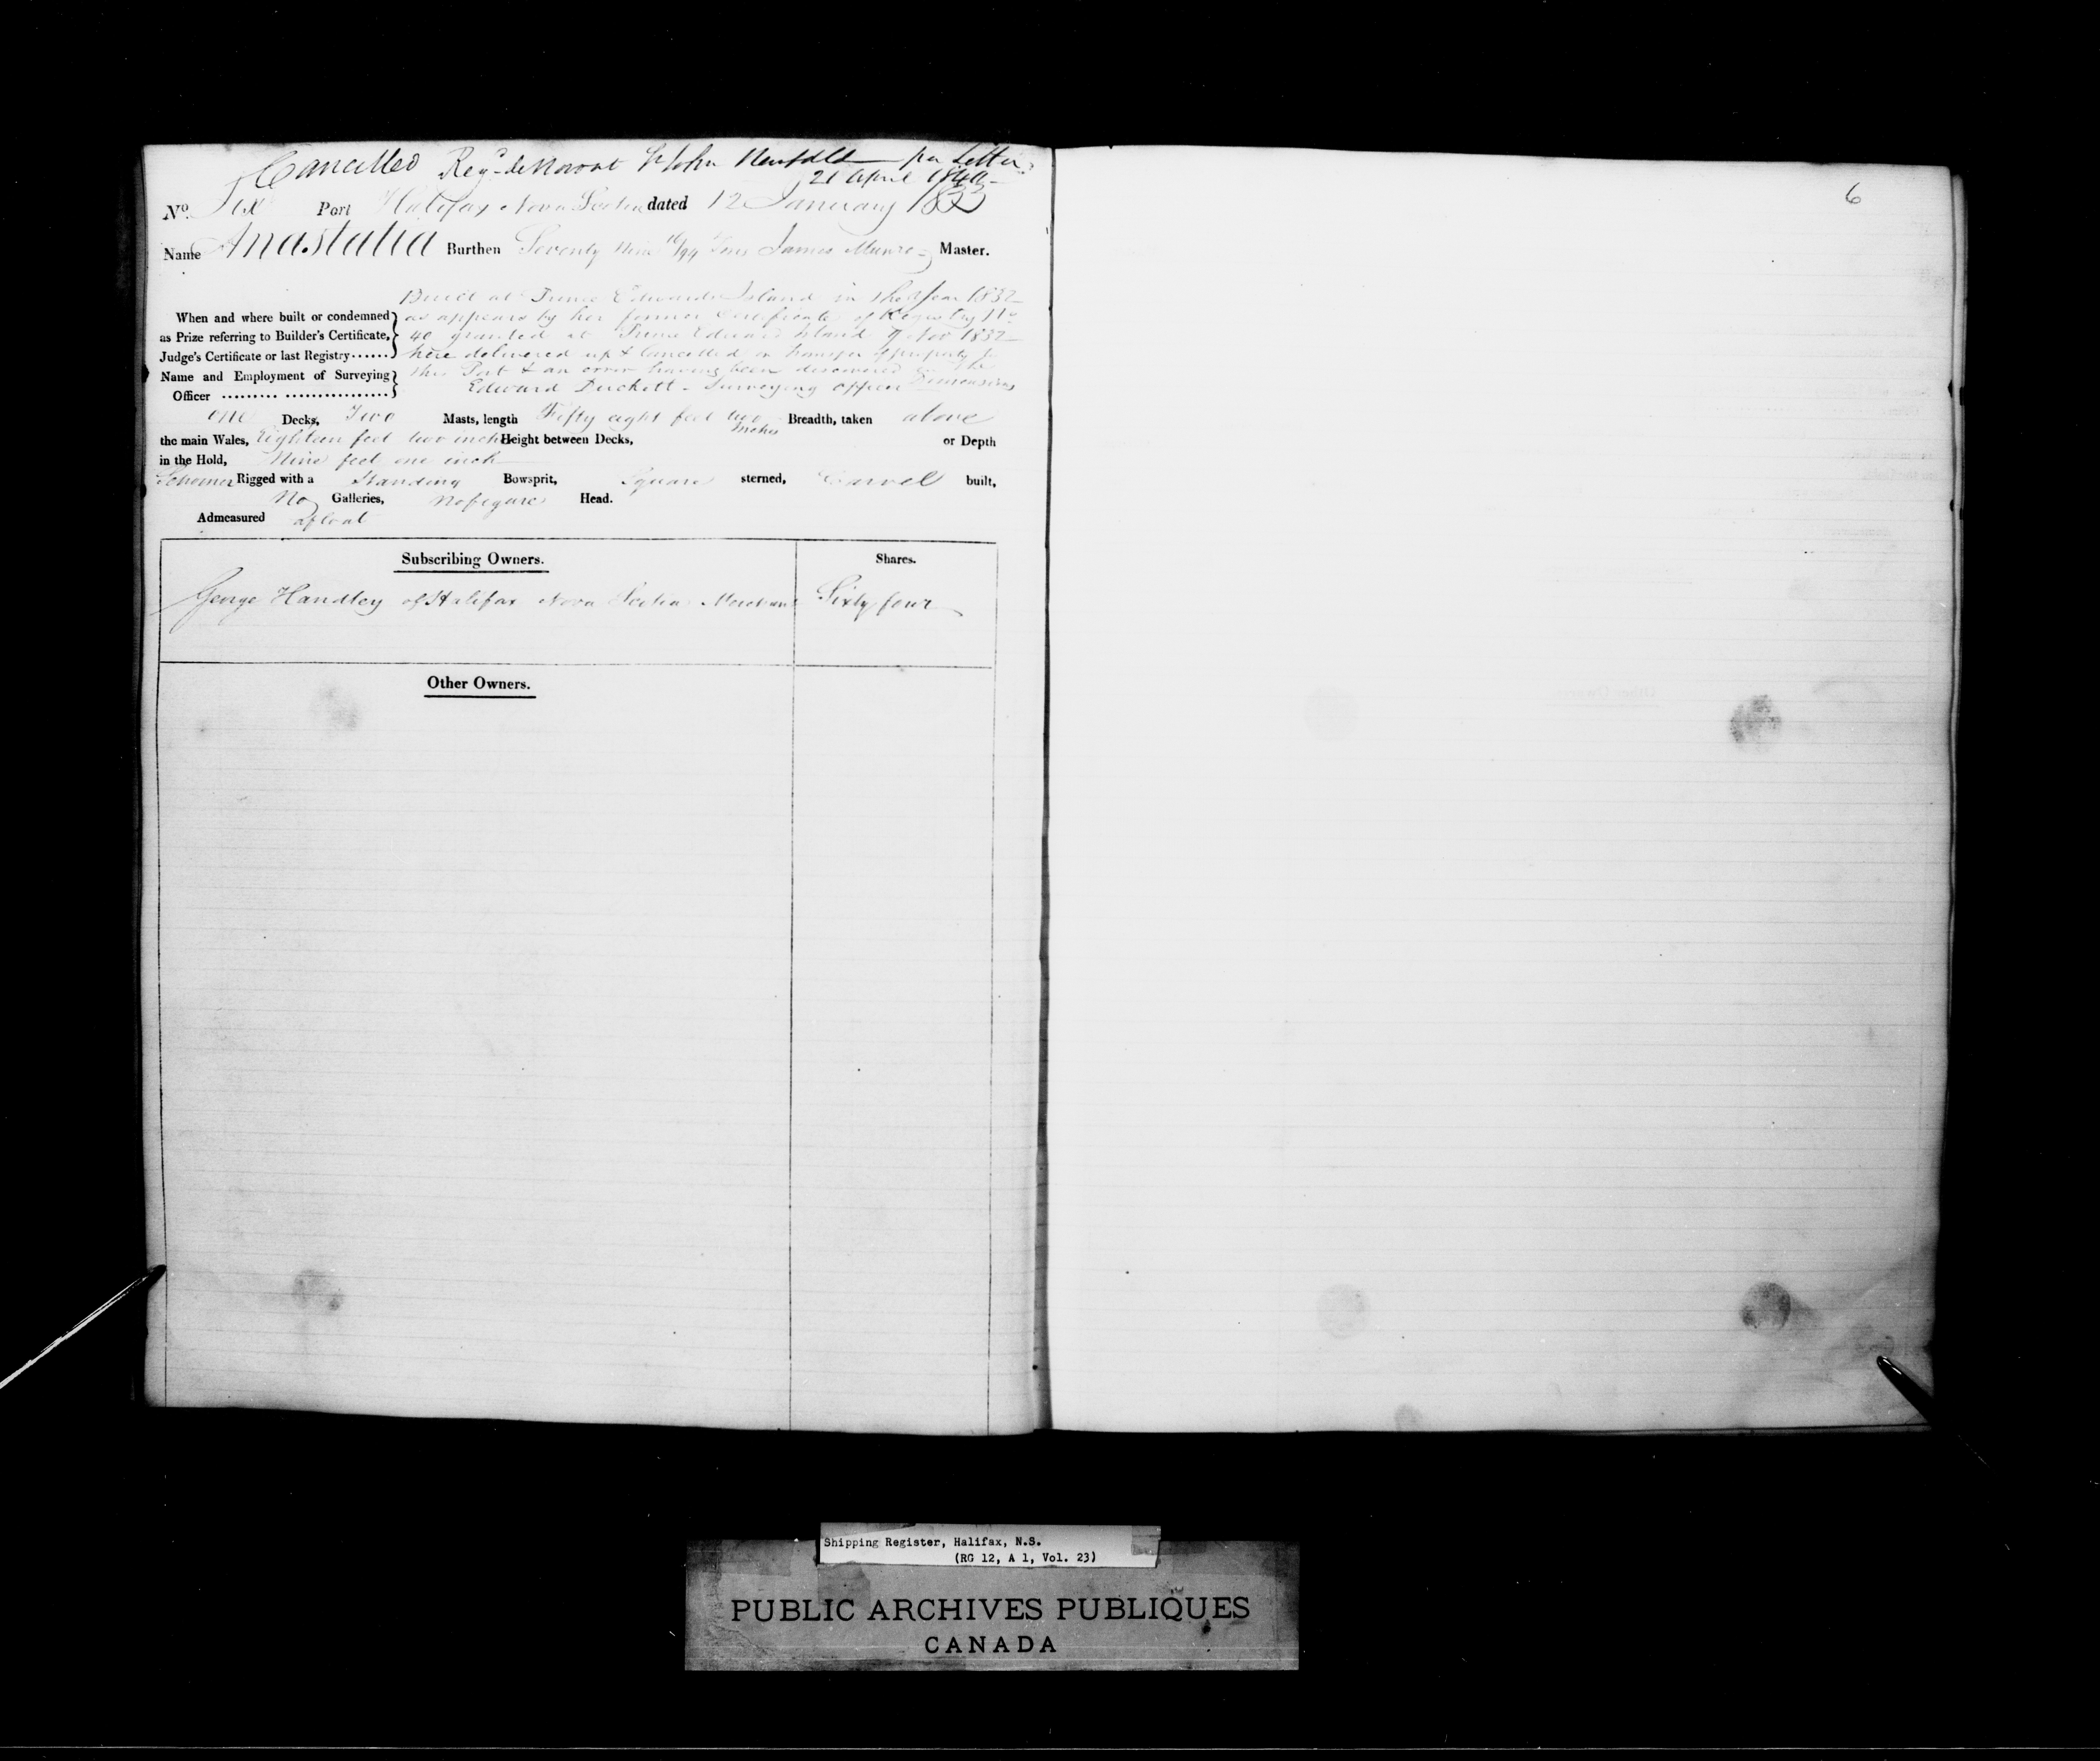 Cancelled Regd de Novo at St John Newfdld per Letter
21 April 1840
No. Six Port Halifax Nova Scotia dated 12 January 1833
Name Anastatia Burthen Seventy Nine 16/94 Tons James Munro Master.
Built at Prince Edwards Island in the Year 1832
When and where built or condemned as appears by her former Certificate of Registry No
as Prize referring to Builder's Certificate, 40 granted at Prince Edward Island 7 Nov 1832
Judge's Certificate or last Registry...... here delivered up & Cancelled on transfer of property to
Name and Employment of Surveying this Port & an error having been discovered in the
Officer ......... ................ Edward Duckett - Surveying officer Dimensions
one Decks, Two Masts, length Fifty eight feet two Inches Breadth, taken above
the main Wales, Eighteen feet two inch Height between Decks, or Depth
in the Hold, Nine feet one inch
Schooner Rigged with a Standing Bowsprit, Square sterned, Carvel built,
No Galleries, No figure Head.
Admeasured afloat
Subscribing Owners. Shares.
George Handley of Halifax Nova Scotia Merchant Sixty four
Other Owners.
6
Shipping Register, Halifax, N.S.
(RG 12, A 1, Vol. 23)
PUBLIC ARCHIVES PUBLIQUES
CANADA